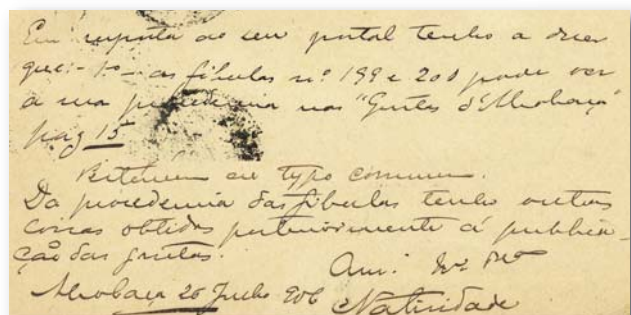 Em resposta ao seu postal tenho a dizer
que:- 1º- as fibulas nº 199 e 200 pode ver
a sua procedencia nas "Grutas d'Alcobaça"
pag 15
Pertencem ao typo commum.
Da procedencia das fibulas tenho outras
coisas obtidas posteriormente á publica-
ção das grutas.
Am.
Alcobaça 26 Julho 906 Natividade